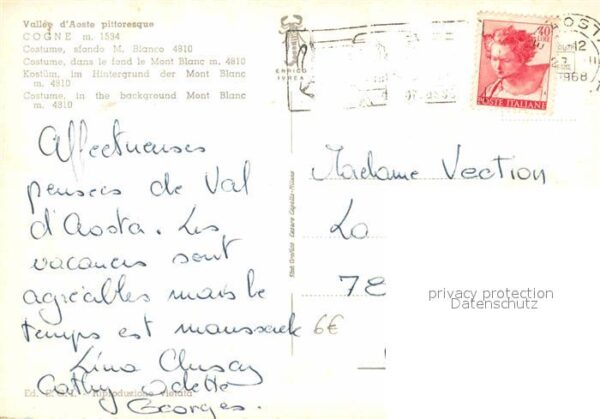 Vallée d'Aoste pittoresque
COGNE m. 1534
Costume, sfondo M. Bianco 4810
Costume, dans le fond le Mont Blanc m. 4810
Kostüm, im Hintergrund der Mont Blanc
m. 4810
Costume, in the background Mont Blanc
m. 4810
ENRICO
IVREA
40
12
1968
POSTE ITALIANE
Affectueuses
pensées de Val
d'Aosta. Les
vacances sont
agréables mais le
temps est maussade
Lina
Cathy Odette
Georges.
Madame Vection
La
78
6€
privacy protection
Datenschutz
Stab. Grafico Cesare Capello - Milano
Riproduzione vietata